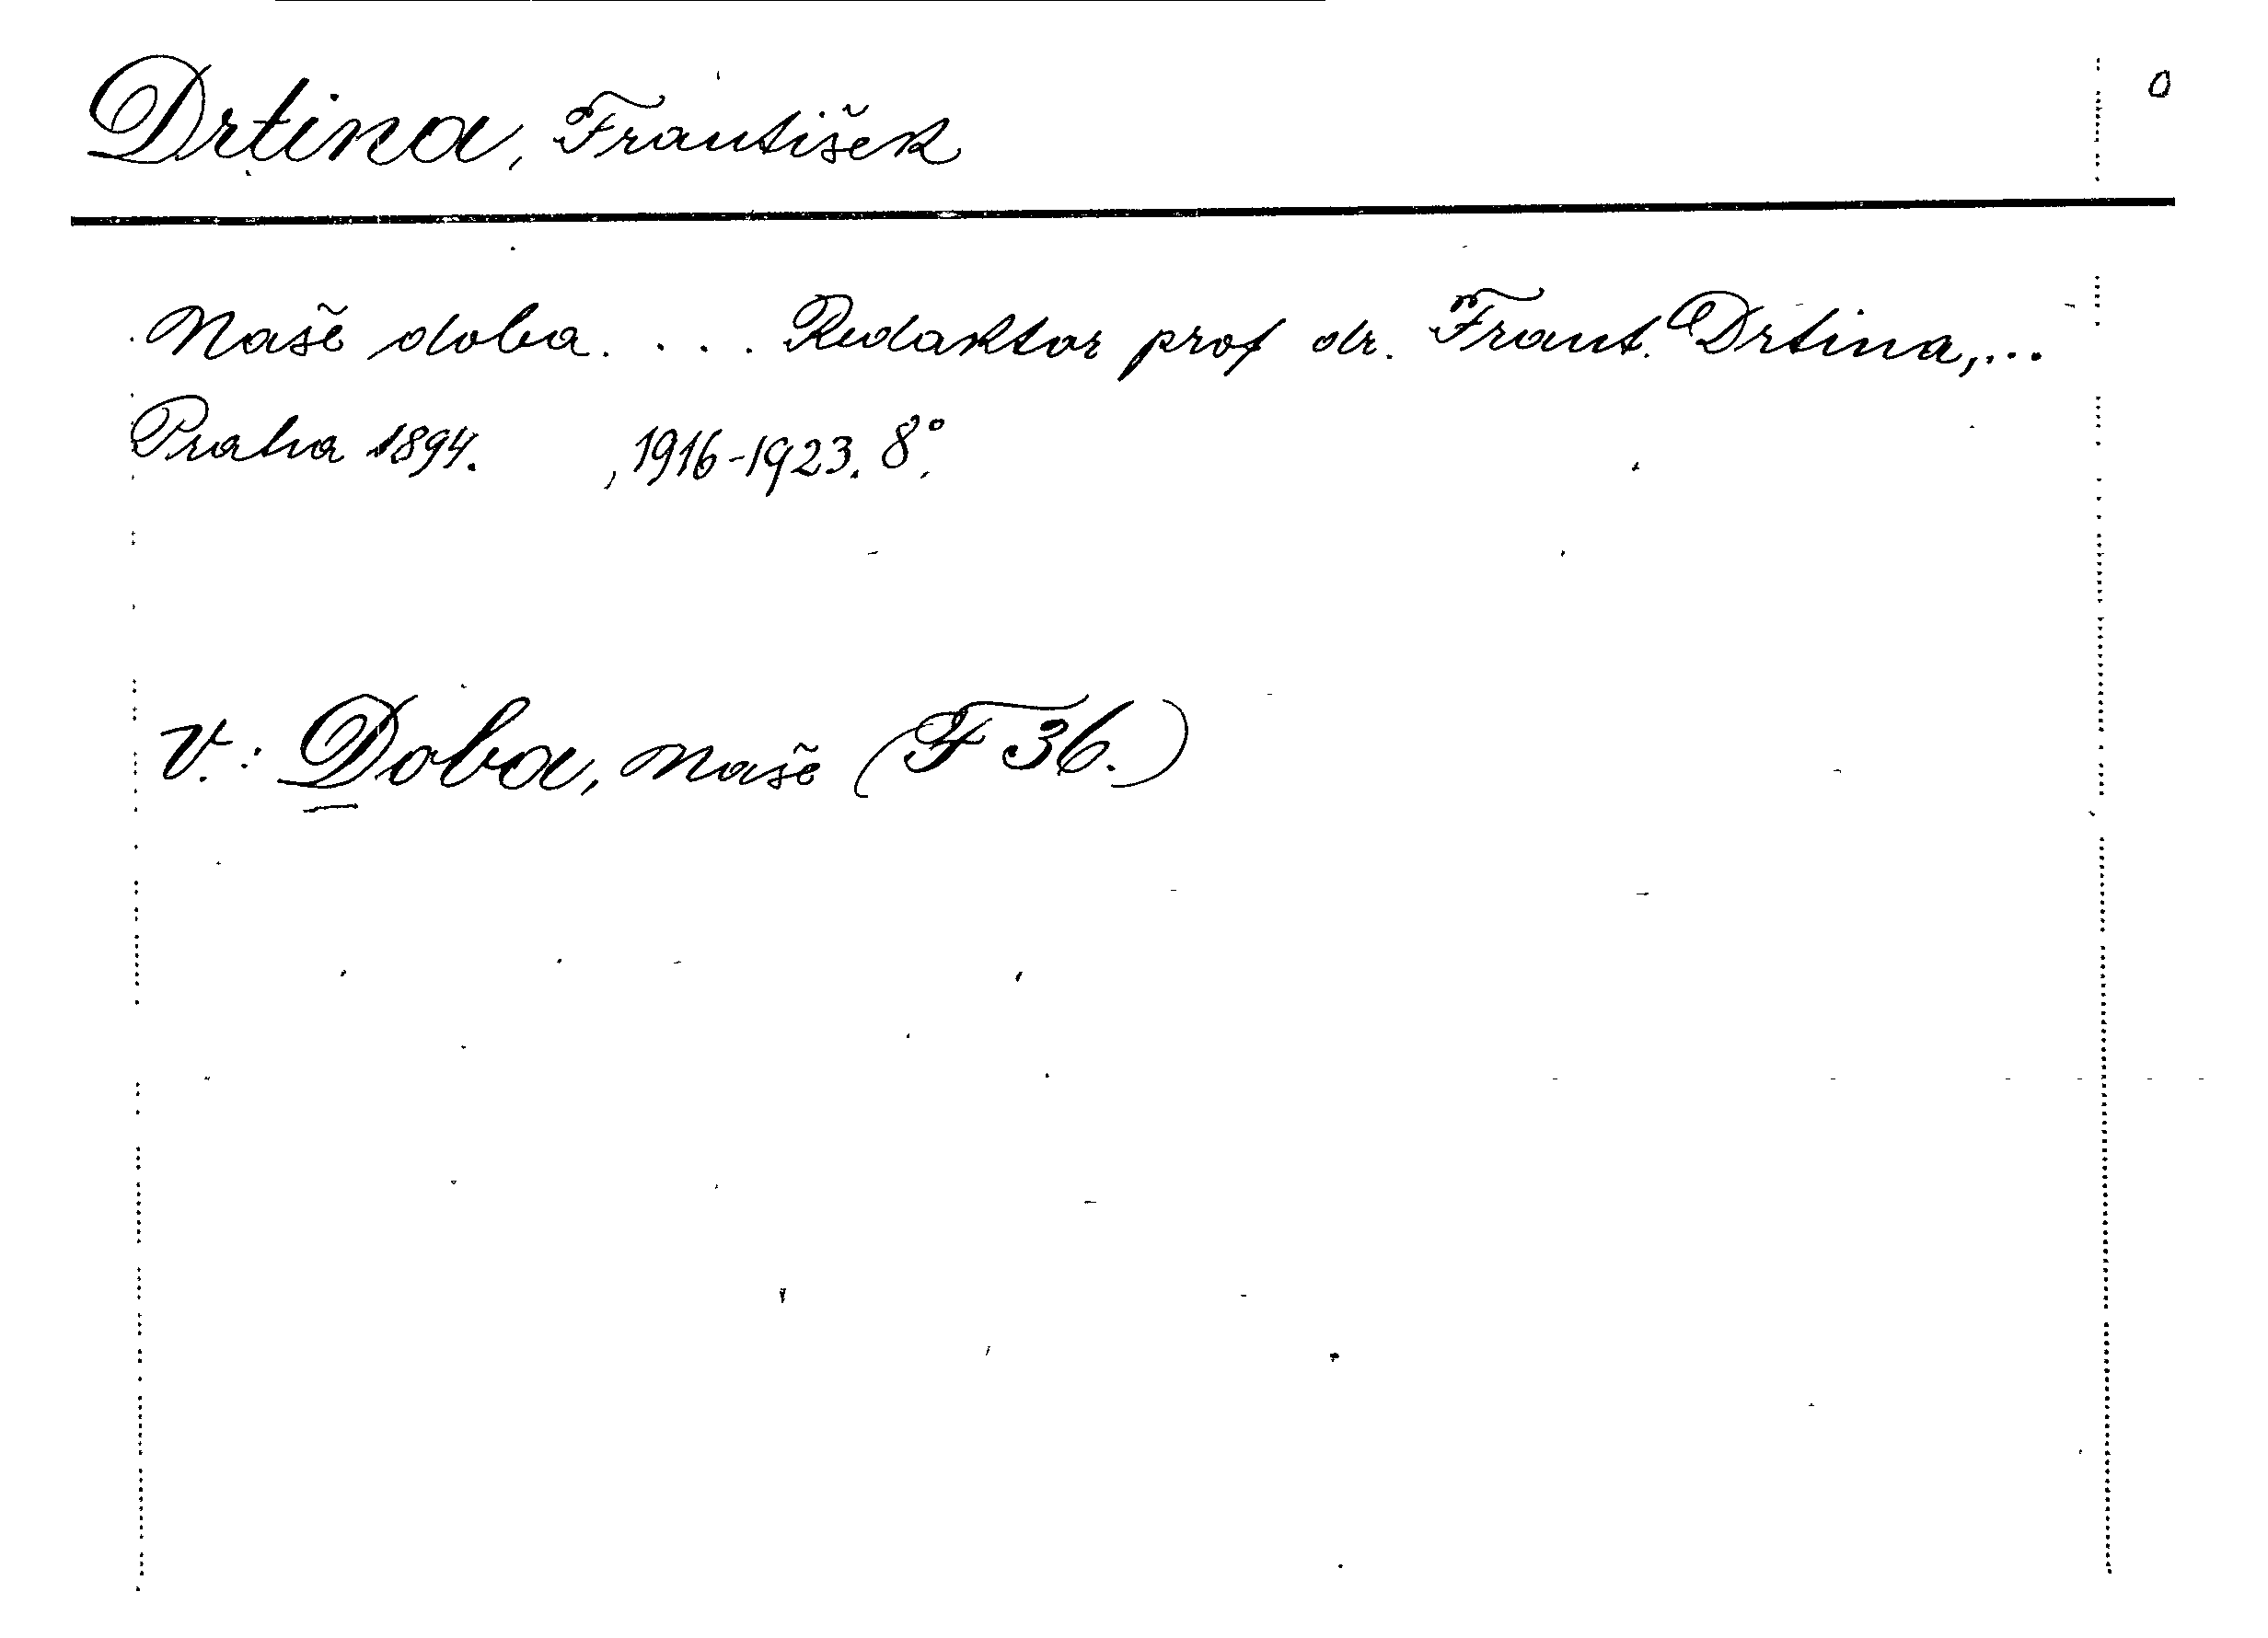 Drtina, František 0
Naše doba. ... Redaktor prof dr. Frant. Drtina,...
Praha 1894. , 1916-1923. 8°.
V.: Doba, Naše (F 36.)